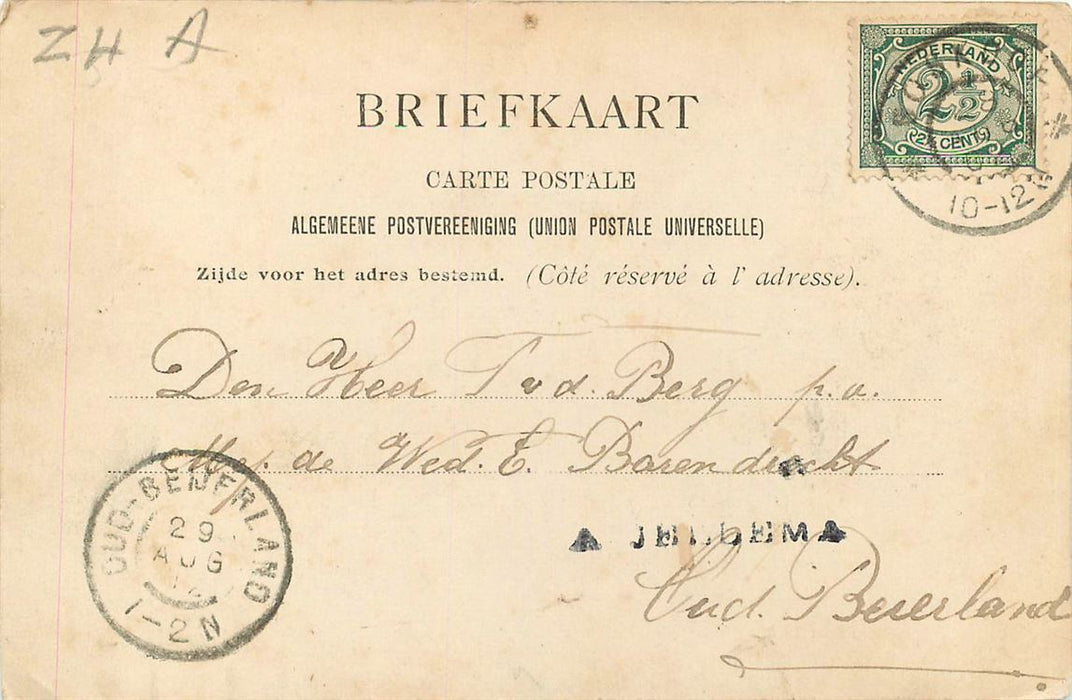 ZH A
NEDERLAND
2½
2½ CENT
10-12
BRIEFKAART
CARTE POSTALE
ALGEMEENE POSTVEREENIGING (UNION POSTALE UNIVERSELLE)
Zijde voor het adres bestemd. (Côté réservé à l' adresse).
Den Heer T v d. Berg p. a.
Mej. de Wed. E. Barendrecht
JELLEMA
Oud. Beierland
OUD-BEIJERLAND
29
AUG
1-2N